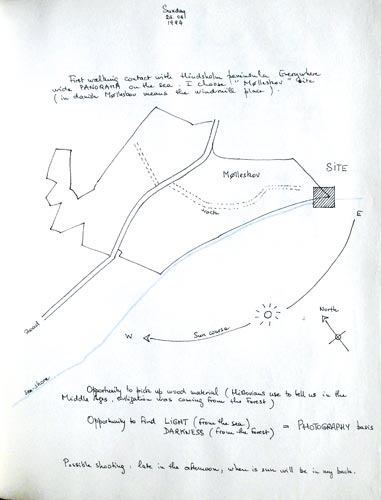 Sunday
26 06
1994
First walking contact with Hindsholm peninsula. Everywhere
wide PANORAMA on the sea. I choose "Mølleskov" site
(in danish Mølleskov means the windmill place).
SITE
Mølleskov
track
E
North
Road
Sun course
W
sea shore
Opportunity to pick up wood material (Historians use to tell us in the
Middle Ages, obligation was coming from the Forest)
Opportunity to find LIGHT (from the sea)
DARKNESS (from the Forest) = PHOTOGRAPHY basis
Possible shooting, late in the afternoon, when is sun will be in my back.